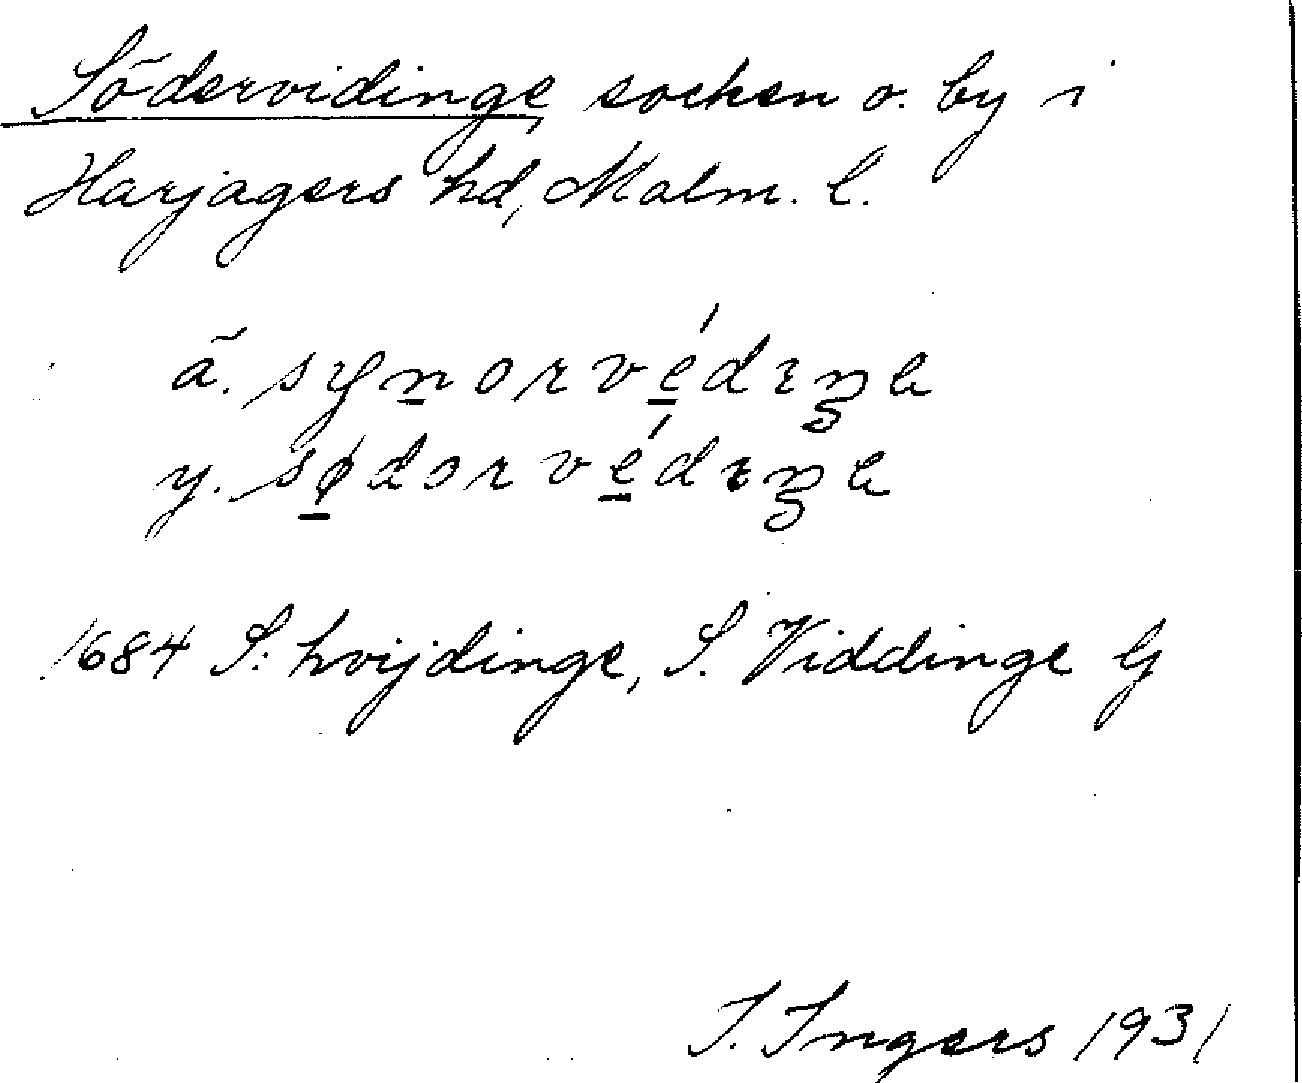 Södervidinge, socken o. by i
Harjagers hd, Malm. l.
ä. sy̲n̲orvé̲dıŋe
y. sø̲dorvé̲dıŋe
1684 S: hvijdinge, S. Viddinge G
I. Ingers 1931